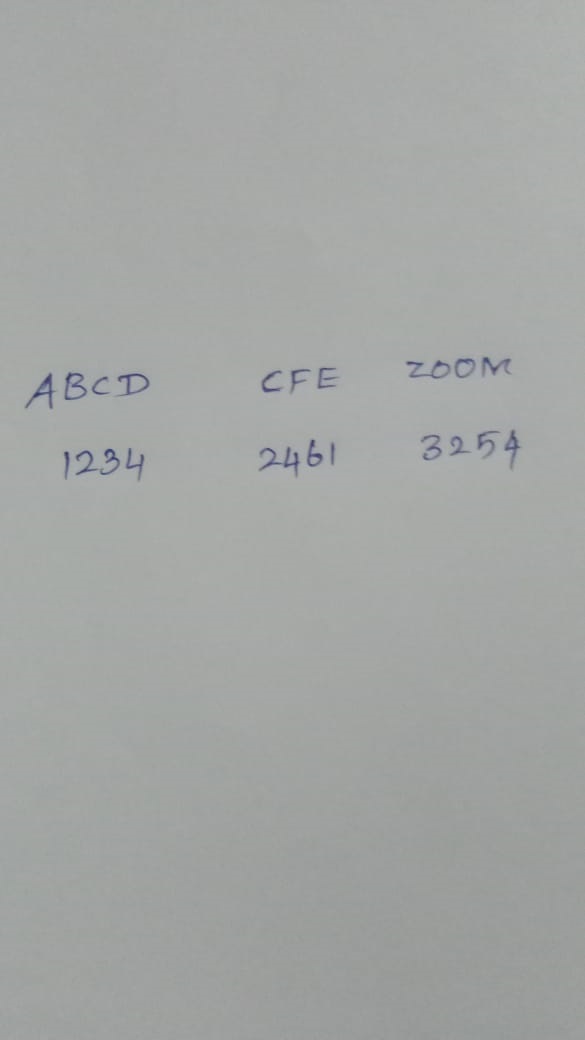 ABCD CFE ZOOM
1234 2461 3254